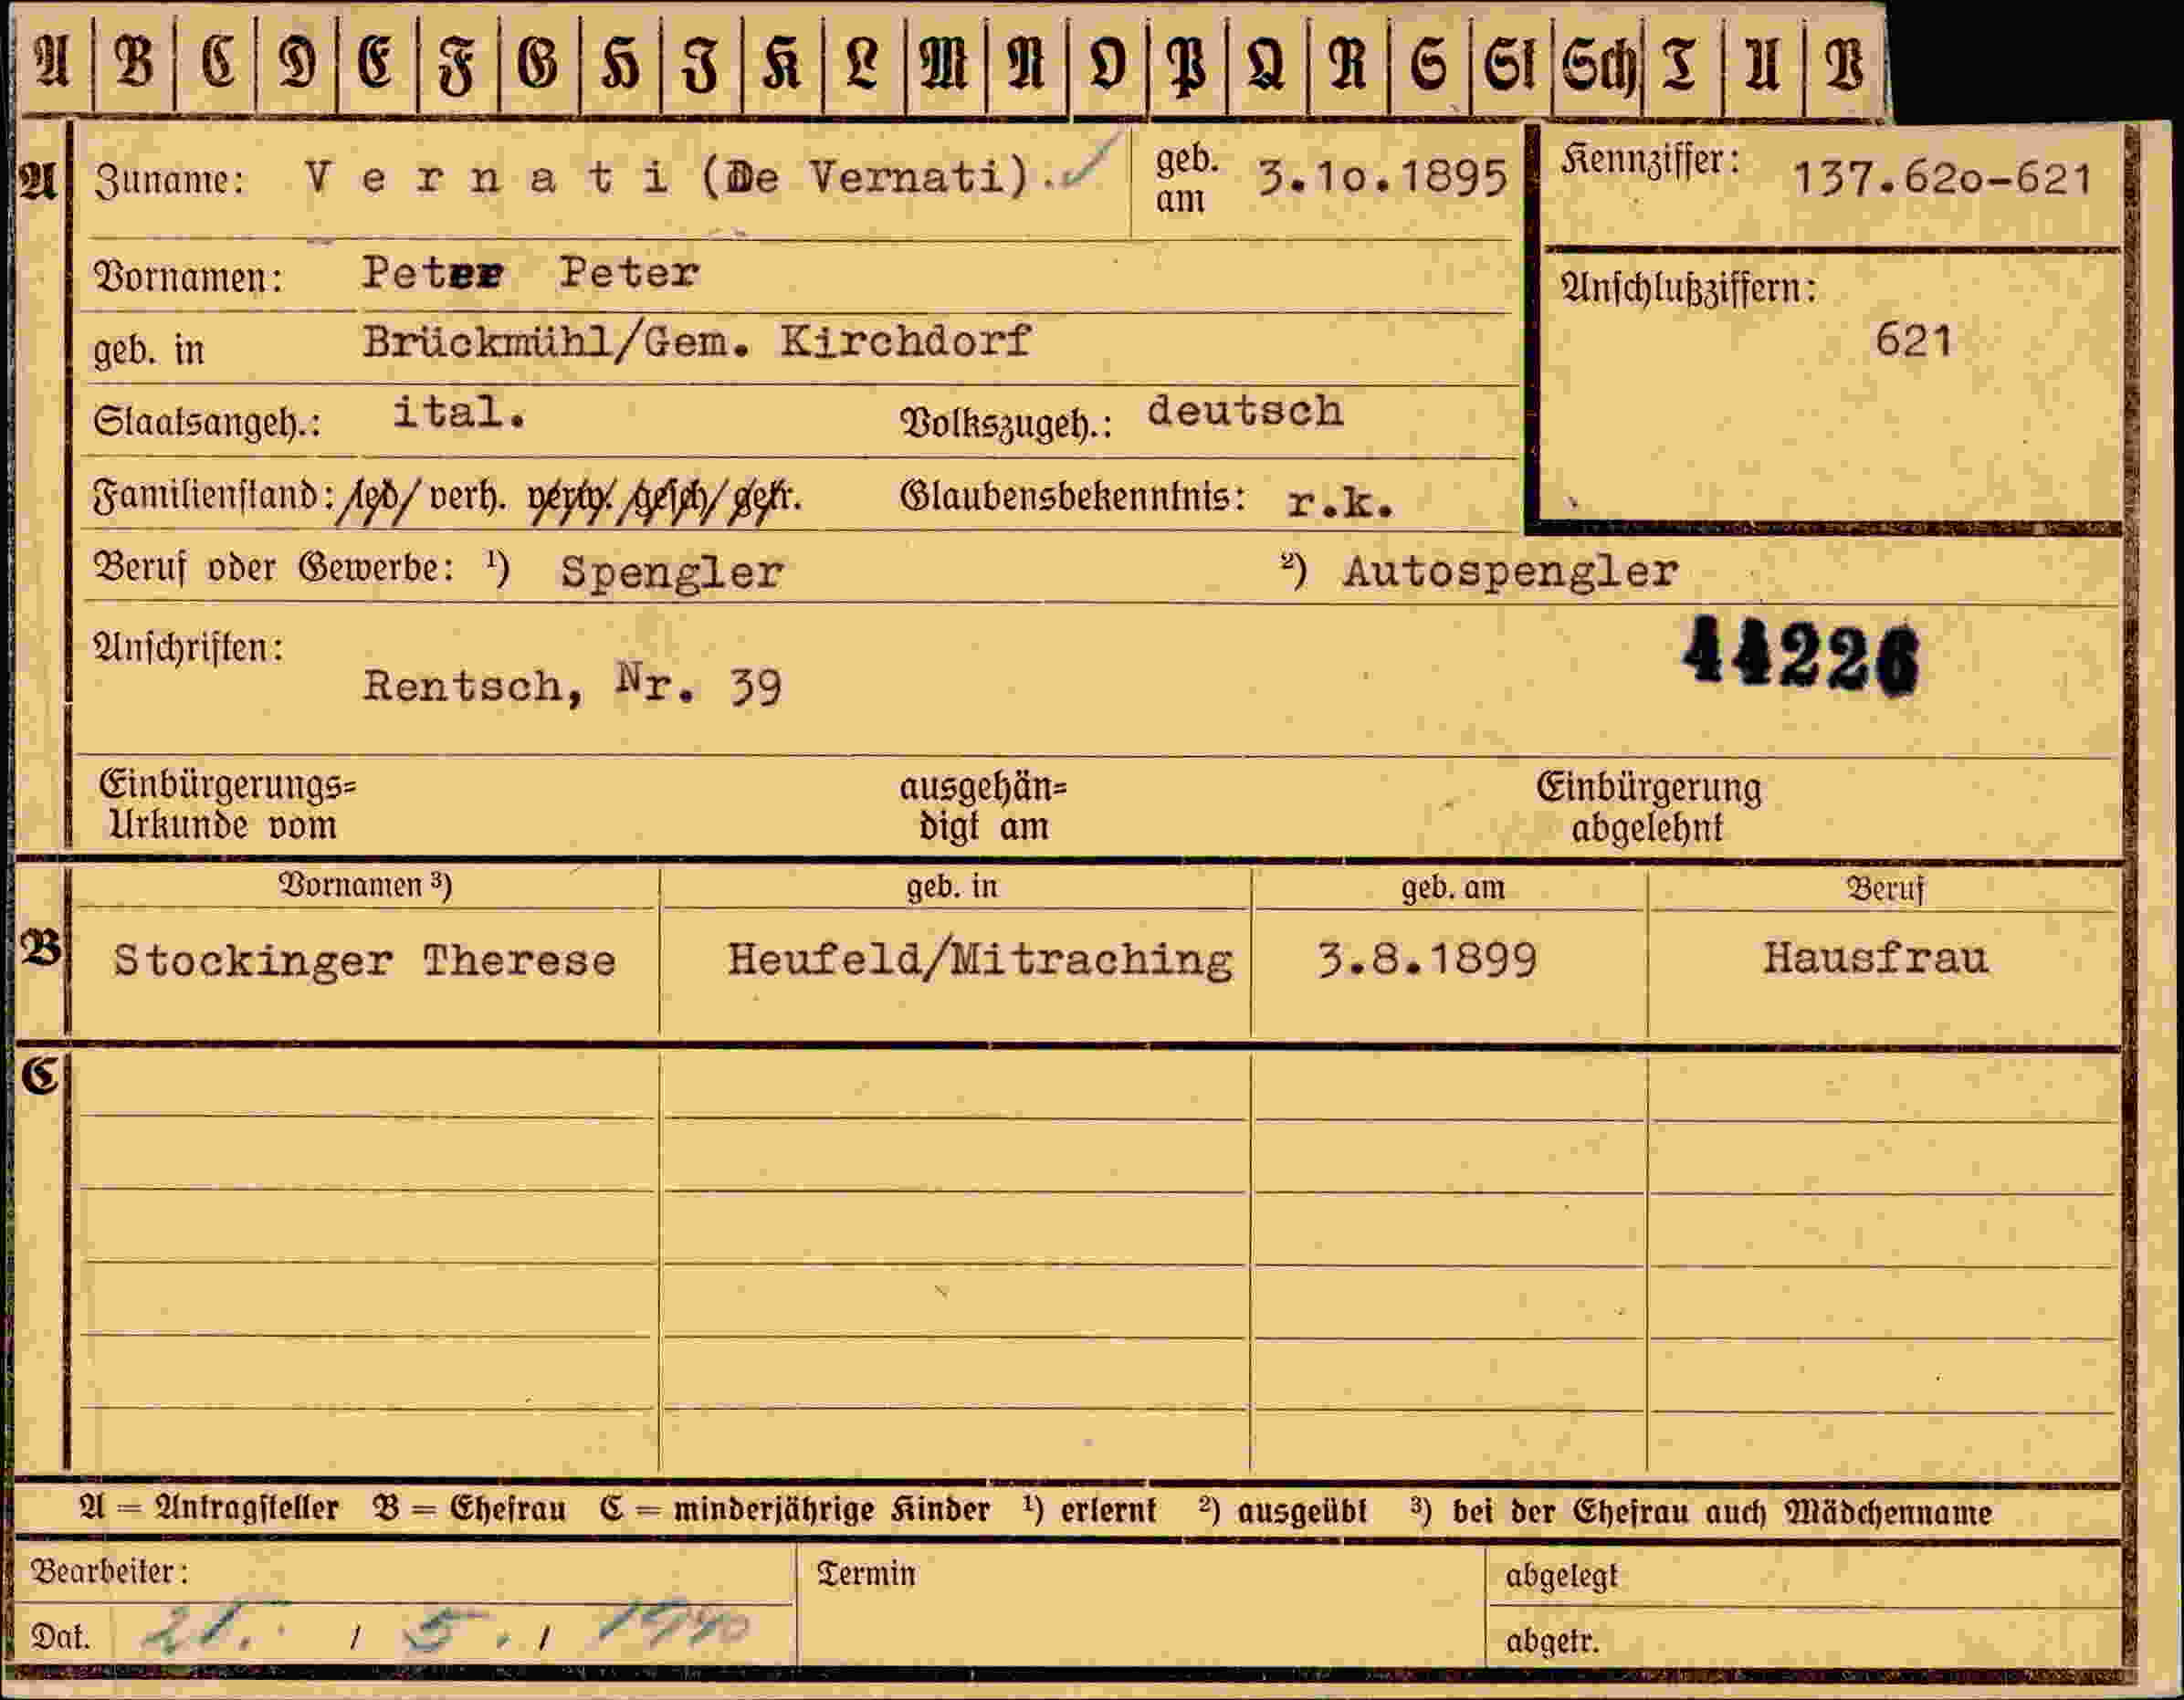 A B C D E F G H J K L M N O P Q R S St Sch T U V
A Zuname: V e r n a t i (De Vernati). geb. am 3.10.1895 Kennziffer: 137.620-621
Vornamen: Peter Peter
Anschlußziffern:
geb. in Brückmühl/Gem. Kirchdorf 621
Staatsangeh.: ital. Volkszugeh.: deutsch
Familienstand: led/ verh. verw./gesch/getr. Glaubensbekenntnis: r.k.
Beruf oder Gewerbe: ¹) Spengler ²) Autospengler
Anschriften: 44226
Rentsch, Nr. 39
Einbürgerungs= ausgehän= Einbürgerung
Urkunde vom digt am abgelehnt
Vornamen ³) geb. in geb. am Beruf
B Stockinger Therese Heufeld/Mitraching 3.8.1899 Hausfrau
C
A = Antragsteller B = Ehefrau C = minderjährige Kinder ¹) erlernt ²) ausgeübt ³) bei der Ehefrau auch Mädchenname
Bearbeiter: Termin abgelegt
Dat. / 5. / 1940 abgetr.